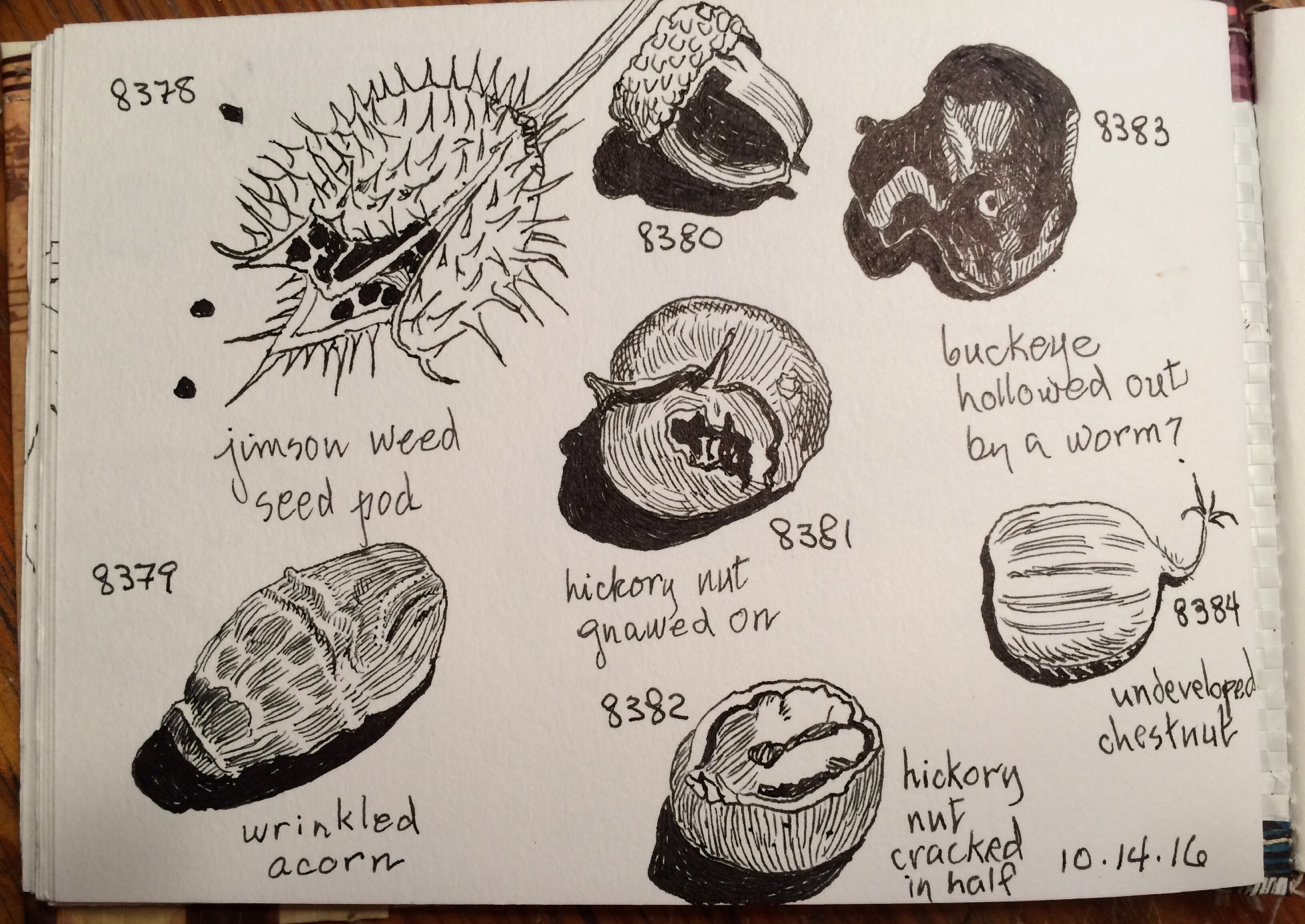 8378
jimson weed
seed pod
8379
wrinkled
acorn
8380
8381
hickory nut
gnawed on
8382
hickory
nut
cracked
in half
8383
buckeye
hollowed out
by a worm?
8384
undeveloped
chestnut
10.14.16